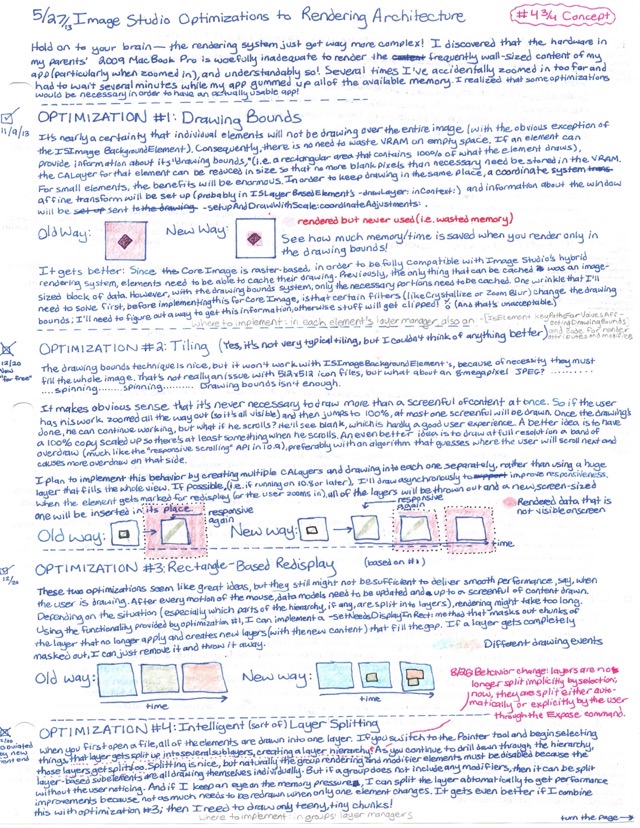 5/27/13 Image Studio Optimizations to Rendering Architecture
#4 3/4 Concept
Hold on to your brain— the rendering system just got way more complex! I discovered that the hardware in
my parents' 2009 MacBook Pro is woefully inadequate to render the frequently wall-sized content of my
app (particularly when zoomed in), and understandably so! Several times I've accidentally zoomed in too far and
had to wait several minutes while my app gummed up all of the available memory. I realized that some optimizations
would be necessary in order to have an actually usable app!
11/9/13
OPTIMIZATION #1: Drawing Bounds
It's nearly a certainty that individual elements will not be drawing over the entire image (with the obvious exception of
the ISImageBackgroundElement). Consequently, there is no need to waste VRAM on empty space. If an element can
provide information about its "drawing bounds," (i.e. a rectangular area that contains 100% of what the element draws),
the CALayer for that element can be reduced in size so that no more blank pixels than necessary need be stored in the VRAM.
For small elements, the benefits will be enormous. In order to keep drawing in the same place, a coordinate system
affine transform will be set up (probably in ISLayerBasedElement's -drawLayer:inContext:) and information about the window
will be set up sent to the drawing -setupAndDrawWithScale:coordinateAdjustments: .
Old Way:
New Way:
rendered but never used (i.e. wasted memory)
See how much memory/time is saved when you render only in
the drawing bounds!
It gets better: Since the Core Image is raster-based, in order to be fully compatible with Image Studio's hybrid
rendering system, elements need to be able to cache their drawing. Previously, the only thing that can be cached was an image-
sized block of data. However, with the drawing bounds system, only the necessary portions need to be cached. One wrinkle that I'll
need to solve first, before implementing this for Core Image, is that certain filters (like Crystallize or Zoom Blur) change the drawing
bounds; I'll need to figure out a way to get this information, otherwise stuff will get clipped! (And that's unacceptable)
where to implement: in each element's layer manager also in
12/20
New
"for free"
OPTIMIZATION #2: Tiling (Yes, it's not very typical tiling, but I couldn't think of anything better)
The drawing bounds technique is nice, but it won't work with ISImageBackgroundElement's, because of necessity they must
fill the whole image. That's not really an issue with 512x512 icon files, but what about an 8-megapixel JPEG? .........
....spinning......spinning.......... Drawing bounds isn't enough.
It makes obvious sense that it's never necessary to draw more than a screenful of content at once. So if the user
has his work zoomed all the way out (so it's all visible) and then jumps to 100%, at most one screenful will be drawn. Once the drawing's
done, he can continue working, but what if he scrolls? He'll see blank, which is hardly a good user experience. A better idea is to have
a 100% copy scaled up so there's at least something when he scrolls. An even better idea is to draw at full resolution a band of
overdraw (much like the "responsive scrolling" API in 10.9), preferably with an algorithm that guesses where the user will scroll next and
causes more overdraw on that side.
I plan to implement this behavior by creating multiple CALayers and drawing into each one separately, rather than using a huge
layer that fills the whole view. If possible, (i.e. if running on 10.8 or later), I'll draw asynchronously to support improve responsiveness.
When the element gets marked for redisplay (or the user zooms in), all of the layers will be thrown out and a new, screen-sized
one will be inserted in its place.
responsive
again
Old way:
New way:
responsive
again
time
Rendered data that is
not visible on screen
12/20
OPTIMIZATION #3: Rectangle-Based Redisplay (based on #1)
These two optimizations seem like great ideas, but they still might not be sufficient to deliver smooth performance, say, when
the user is drawing. After every motion of the mouse, data models need to be updated and up to a screenful of content drawn.
Depending on the situation (especially which parts of the hierarchy, if any, are split into layers), rendering might take too long.
Using the functionality provided by optimization #1, I can implement a -setNeedsDisplayInRect: method that masks out chunks of
the layer that no longer apply and creates new layers (with the new content) that fill the gap. If a layer gets completely
masked out, I can just remove it and throw it away.
Different drawing events
Old way:
time
New way:
time
8/26: Behavior change: layers are no
longer split implicitly by selection;
now, they are split either auto-
matically or explicitly by the user
through the Expose command.
Obviated
by new
OPTIMIZATION #4: Intelligent (sort of) Layer Splitting
When you first open a file, all of the elements are drawn into one layer. If you switch to the Pointer tool and begin selecting
things, that layer gets split up into several sublayers, creating a layer hierarchy. As you continue to drill down through the hierarchy,
those layers get split too. Splitting is nice, but naturally the group rendering and modifier elements must be disabled because the
layer-based subelements are all drawing themselves individually. But if a group does not include any modifiers, then it can be split
without the user noticing. And if I keep an eye on the memory pressure, I can split the layer automatically to get performance
improvements because not as much needs to be redrawn when only one element changes. It gets even better if I combine
this with optimization #3; then I need to draw only teeny, tiny chunks!
where to implement: in groups' layer managers
turn the page →